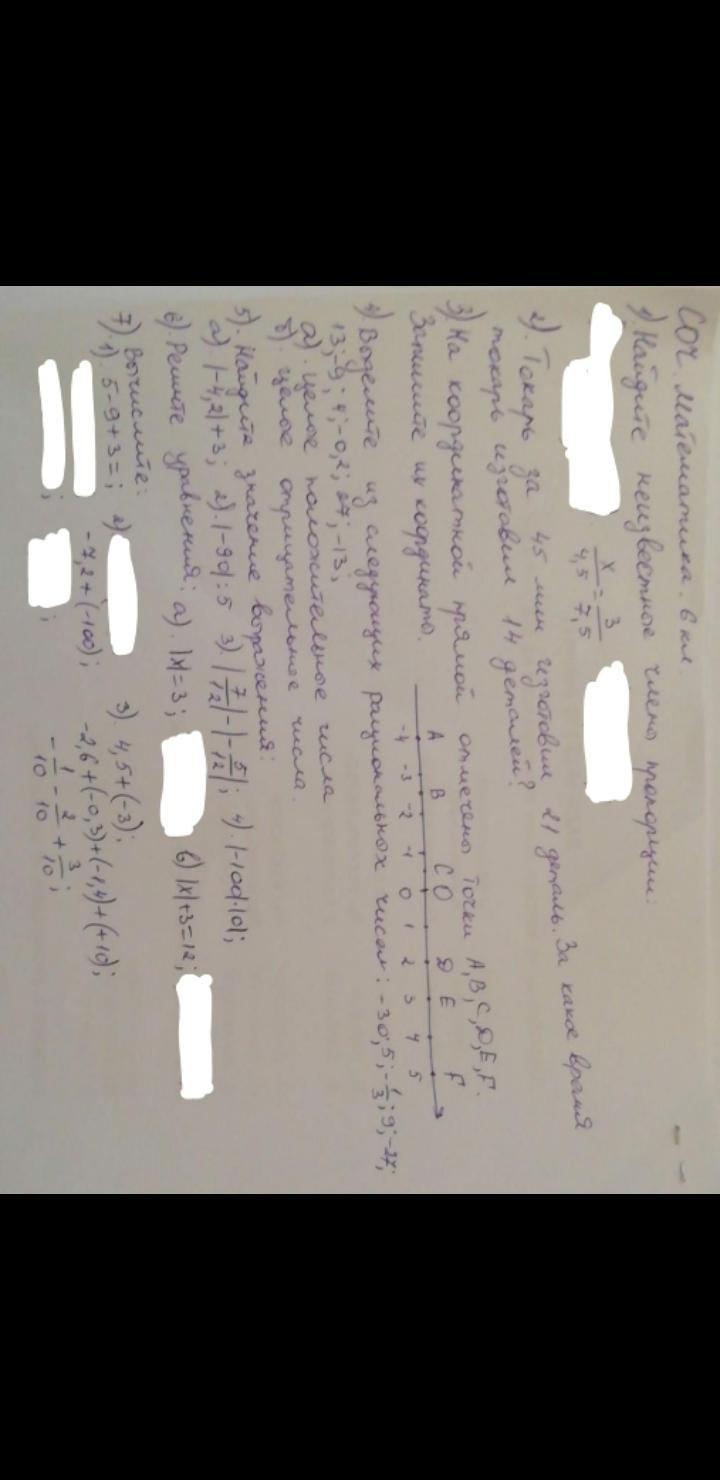 СОЧ. Математика. 6 кл.
1) Найдите неизвестные члены пропорции:
x/4,5 = 3/7,5
2). Токарь за 45 мин изготовил 21 деталь. За какое время
токарь изготовил 14 деталей?
3) На координатной прямой отмечены точки A, B, C, D, E, F.
Запишите их координаты.
A B C O D E F
-4 -3 -2 -1 0 1 2 3 4 5
4) Выделите из следующих рациональных чисел: -30; 5; -1/3; 9; -27;
13; -9; 4; -0,2; 27; -13;
а). целое положительные числа
б). целое отрицательное числа.
5). Найдите значение выражения:
а). |-4,2|+3; 2). |-90|:5 3). |7/12|-|-5/12|; 4). |-100|·|0|;
6). Решите уравнения: а). |x|=3; в) |x|+3=12;
7). Вычислите:
1). 5-9+3=; 2) 3). 4,5+(-3);
-7,2+(-100); -2,6+(-0,3)+(-1,4)+(+10);
; ; -1/10-2/10+3/10;